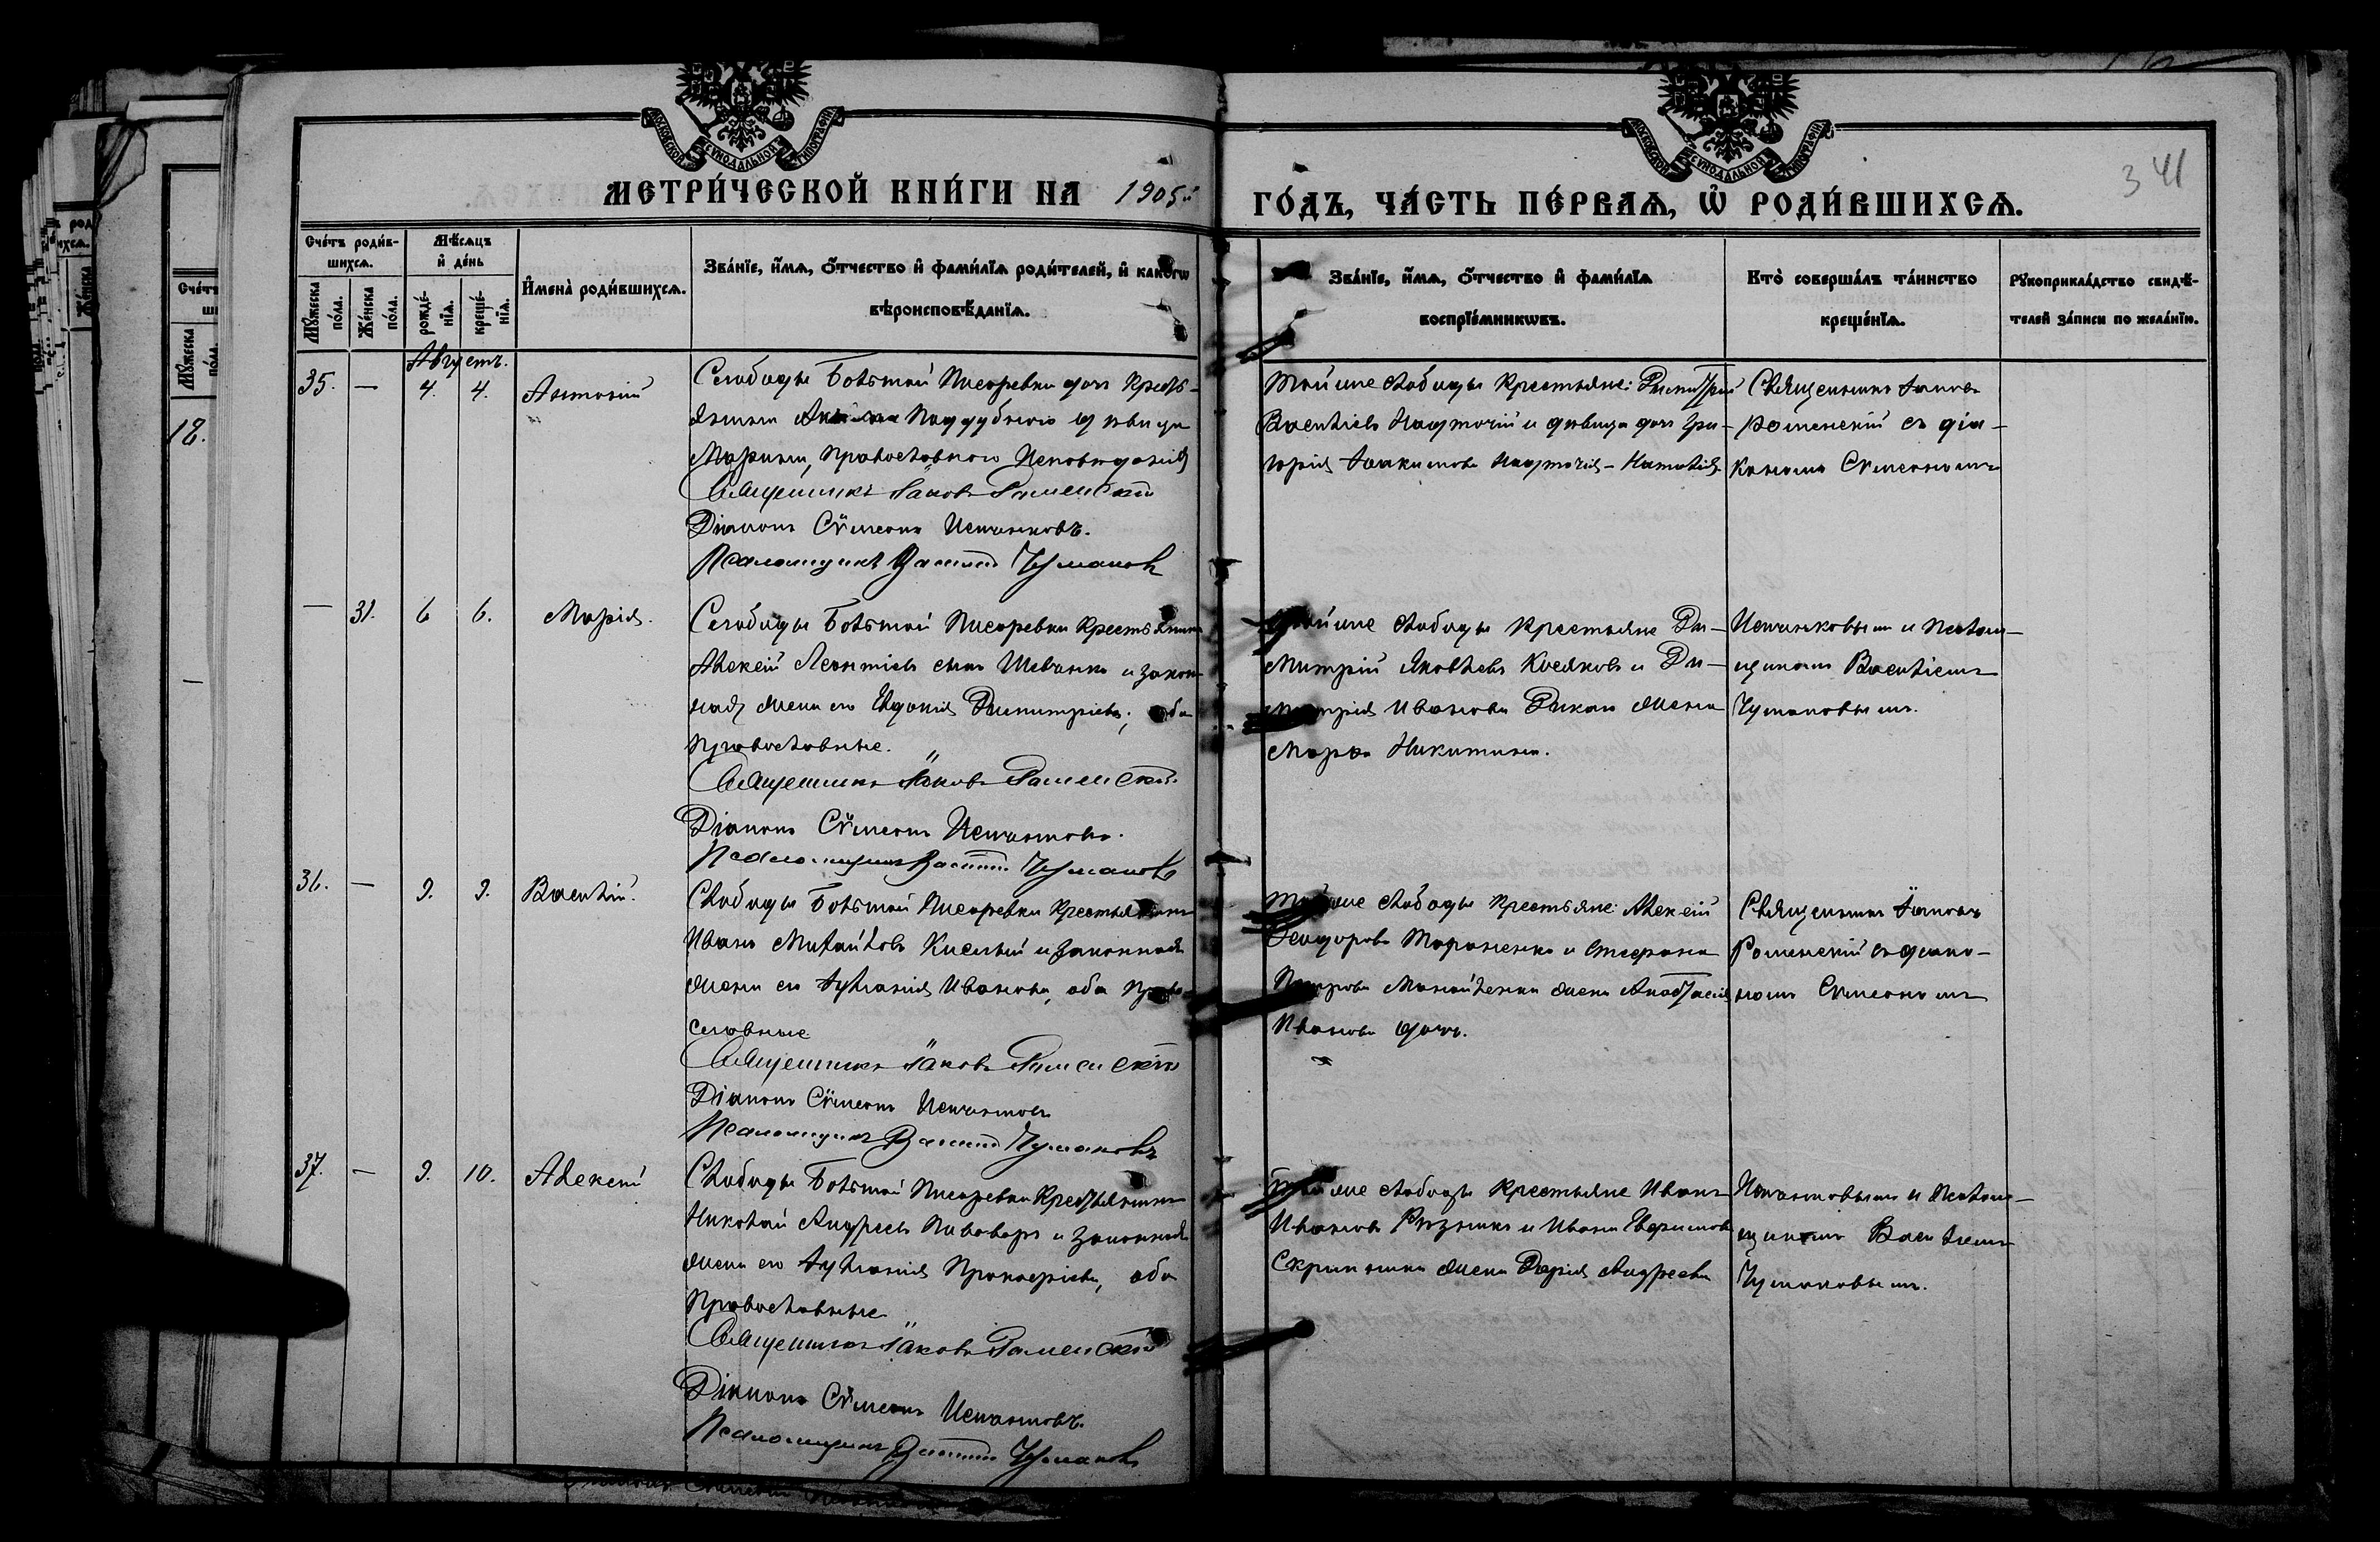 341
МЕТРИ́ЧЕСКОЙ КНИ́ГИ НА 1905й ГО́ДЪ, ЧА́СТЬ ПЕ́РВАѦ, Ѿ РОДИ́ВШИХСѦ.
МОСКОВСКОЙ СѴНОДАЛЬНОЙ ТИПОГРАФІИ
МОСКОВСКОЙ СѴНОДАЛЬНОЙ ТИПОГРАФІИ
Сче́тъ роди́в-
шихсѧ.
Мꙋ́жеска по́ла.
Же́нска по́ла.
Мѣ́сѧцъ
и҆ де́нь
рожде́-
нїѧ.
креще́-
нїѧ.
И҆мена̀ роди́вшихсѧ.
Зва́нїе, и҆́мѧ, ѻ҆́тчество и҆ фами́лїѧ роди́телей, и҆ како́гѡ
вѣроисповѣ́данїѧ.
Зва́нїе, и҆́мѧ, ѻ҆́тчество и҆ фами́лїѧ
воспрїе́мникѡвъ.
Кто̀ соверша́лъ та́инство
креще́нїѧ.
Рꙋкоприкла́дство свидѣ́-
телей за́писи по жела́нїю.
Августъ.
35. — 4. 4. Антоній
Слободы Большой Писаревки дочь кресть-
янина Поддубного девица
Марина, православного исповѣданія
Священникъ Іаковъ Раменскій
Діаконъ Сѵмеонъ Истинковъ.
Псаломщикъ Василій Чумаковъ
Той же слободы крестьяне: Димитрій
Васильевъ и дѣвица дочь Гри-
горія Іоакимова Наталія
Священникъ Іаковъ
Раменскій съ діа-
кономъ Сѵмеономъ
— 31. 6 6. Марія.
Слободы Большой Писаревки крестьянинъ
Алексій Леонтіевъ сынъ Шевченко и закон-
ная жена его Евдокія Димитріева, оба
православные.
Священникъ Іаковъ Раменскій
Діаконъ Сѵмеонъ Истинковъ.
Псаломщикъ Василій Чумаковъ
Той же слободы крестьяне Ди-
митрій Яковлевъ Косяковъ и Ди-
митрія Иванова Дикаго жена
Марѳа Никитина.
Истинковымъ и псалом-
щикомъ Василіемъ
Чумаковымъ.
36. — 9. 9. Василій.
Слободы Большой Писаревки крестьянинъ
Иванъ Михайловъ Кислый и законная
жена его Іуліанія Иванова, оба право-
славные
Священникъ Іаковъ Раменскій
Діаконъ Сѵмеонъ Истинковъ
Псаломщикъ Василій Чумаковъ
Той же слободы крестьяне: Алексій
Ѳеодоровъ Тараненко и Стефана
Петрова Манойленка жена Анастасія
Иванова дочь.
Священникъ Іаковъ
Раменскій съ діако-
номъ Сѵмеономъ
37. — 9. 10. Алексій
Слободы Большой Писаревки крестьянинъ
Николай Андреевъ Пивоваръ и законная
жена его Іуліанія Прокофіева, оба
православные
Священникъ Іаковъ Раменскій
Діаконъ Сѵмеонъ Истинковъ.
Псаломщикъ Василій Чумаковъ
Той же слободы крестьяне Иванъ
Ивановъ Рѣзникъ и Ивана Евфимова
Скрипника жена Дарія Андреева
Истинковымъ и псалом-
щикомъ Василіемъ
Чумаковымъ.
18.